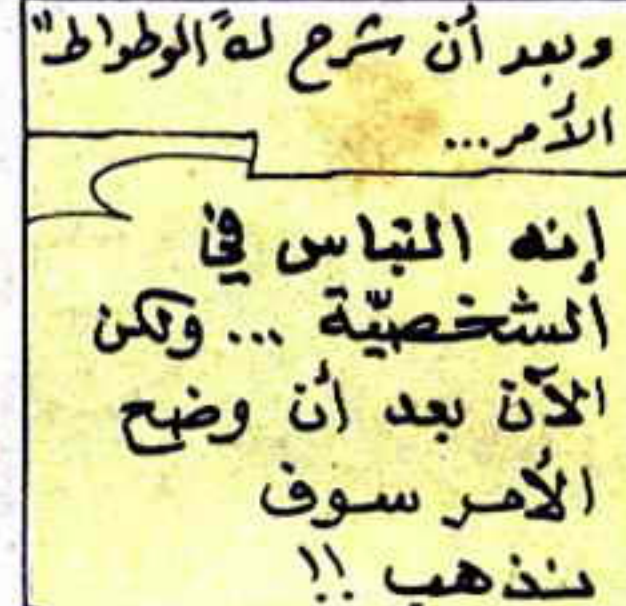 وبعد أن شرح له "الوطواط"
الأمر...
إنه التباس في
الشخصيّة ... ولكن
الآن بعد أن وضح
الأمر سوف
نذهب !!